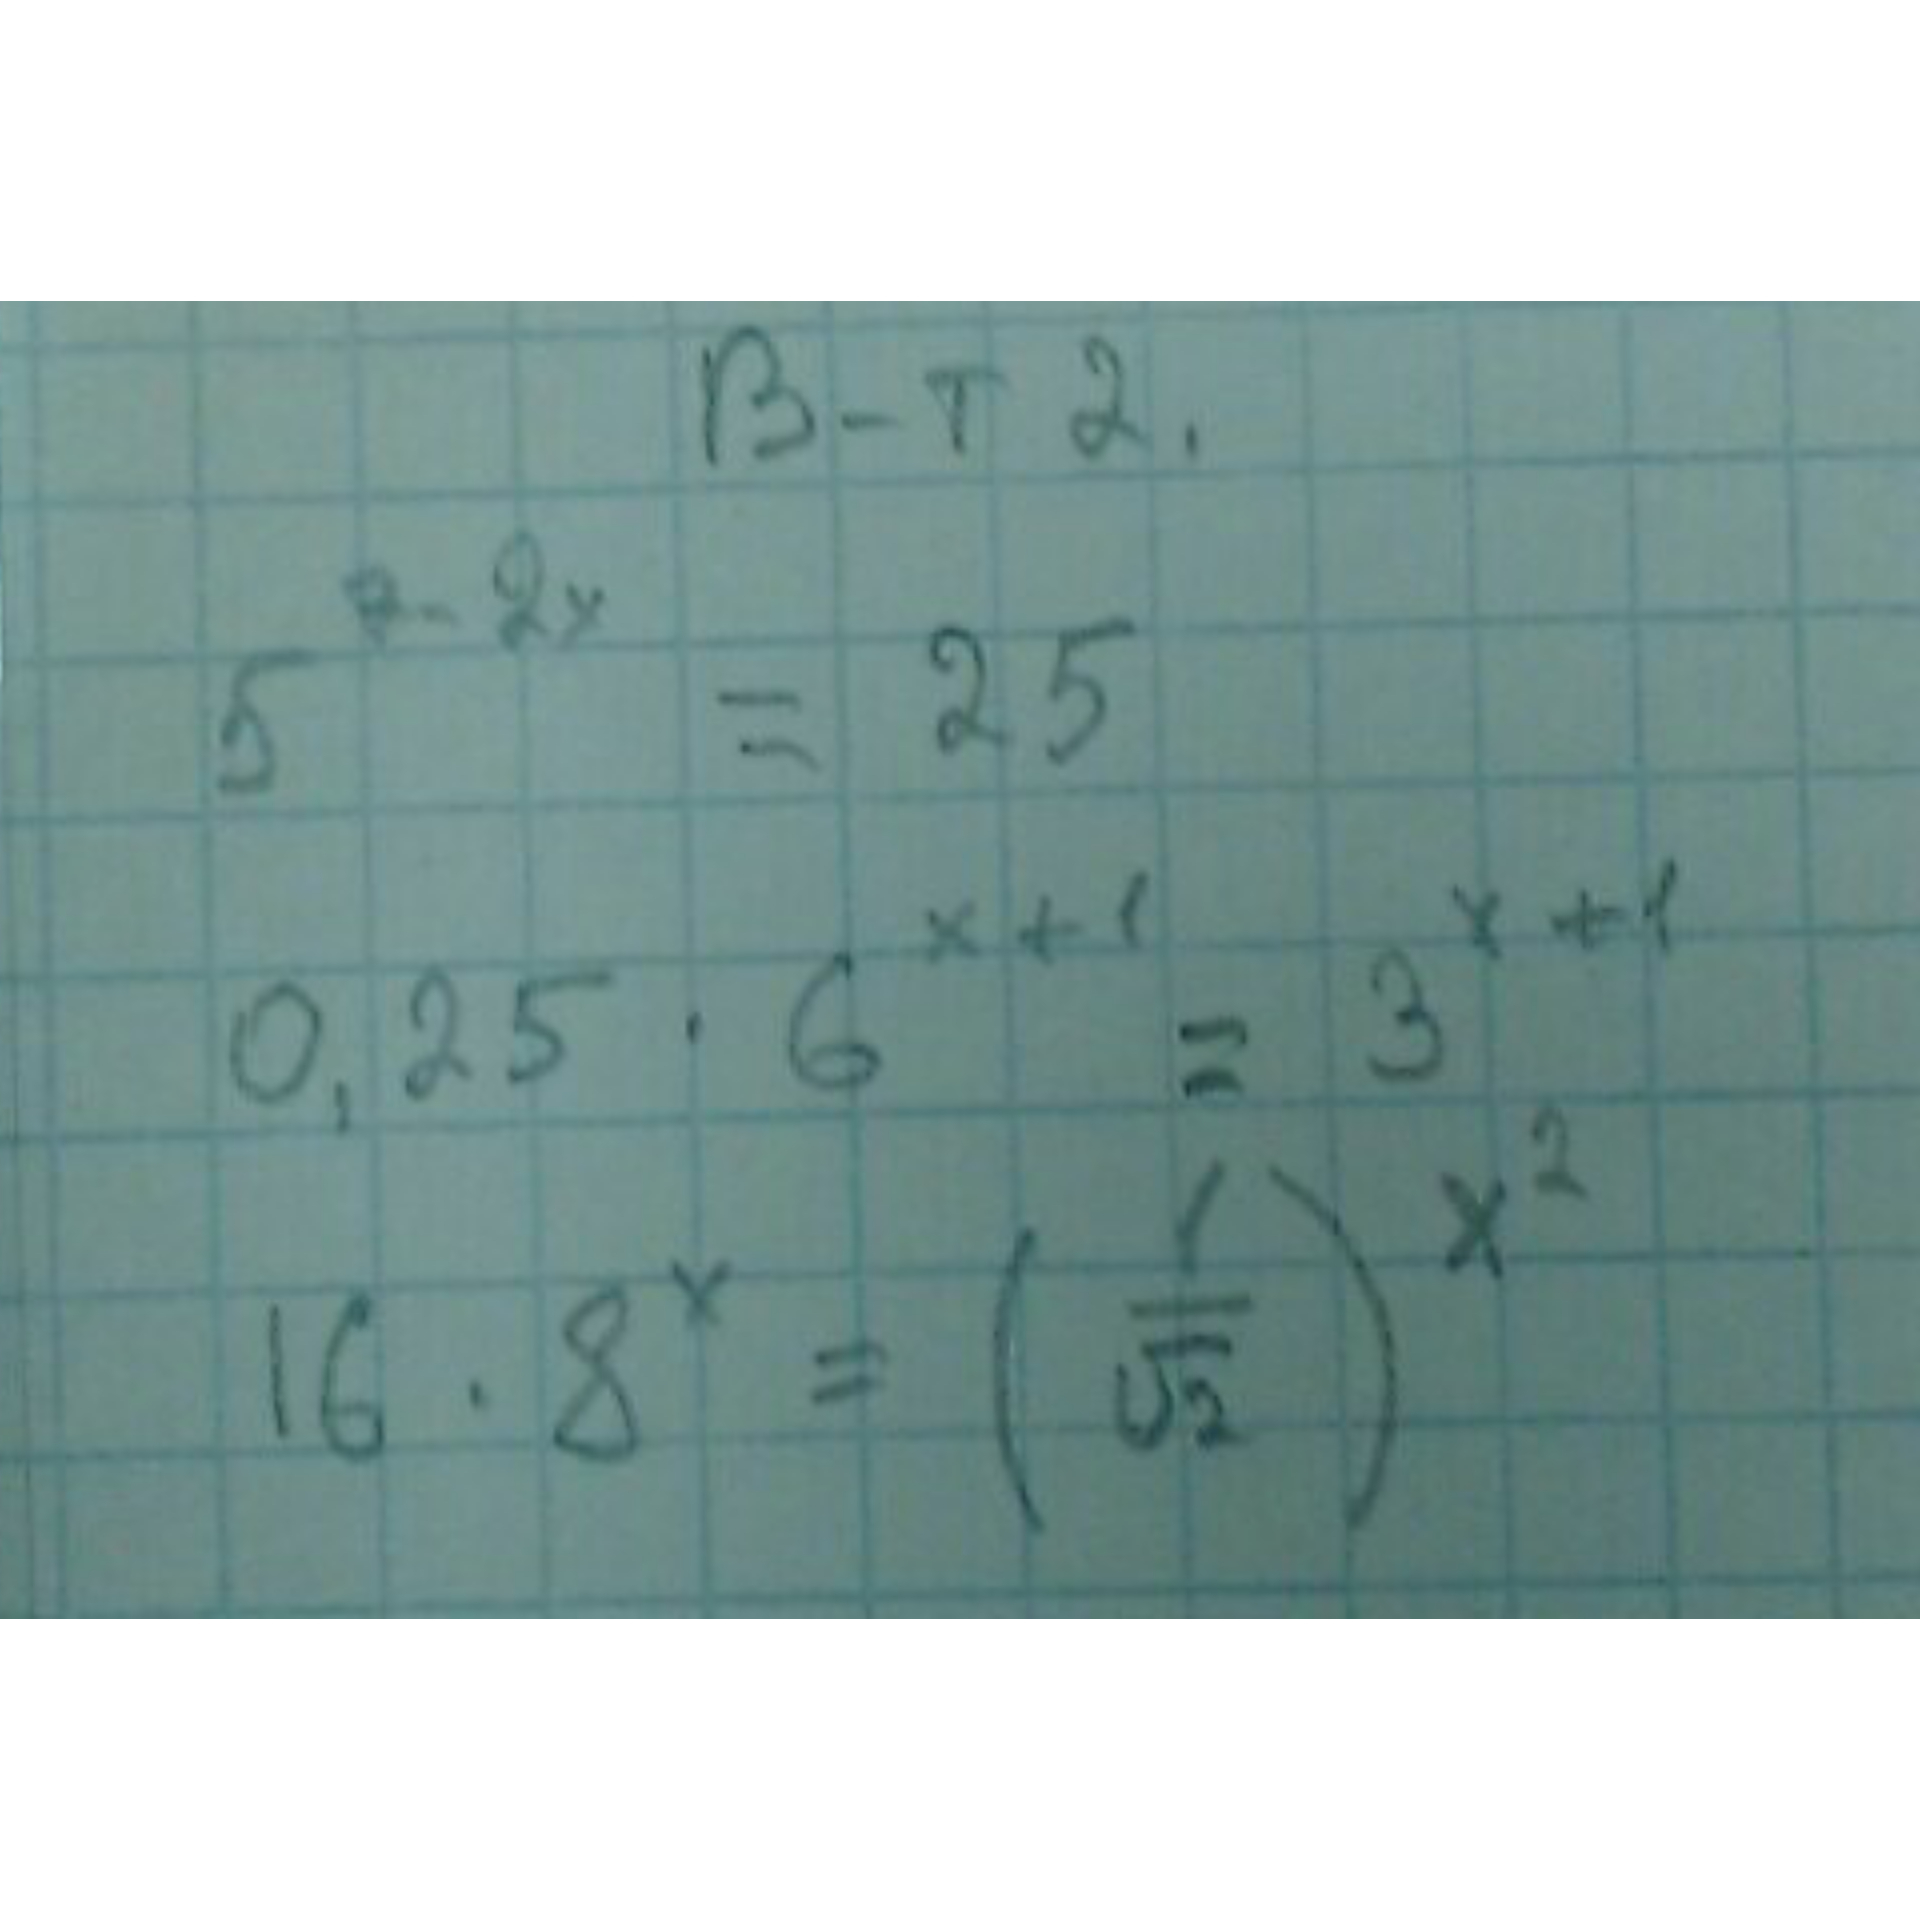 В-т 2.
5^{2-2x} = 25
0,25 · 6^{x+1} = 3^{x+1}
16 · 8^x = (1/√2)^{x^2}